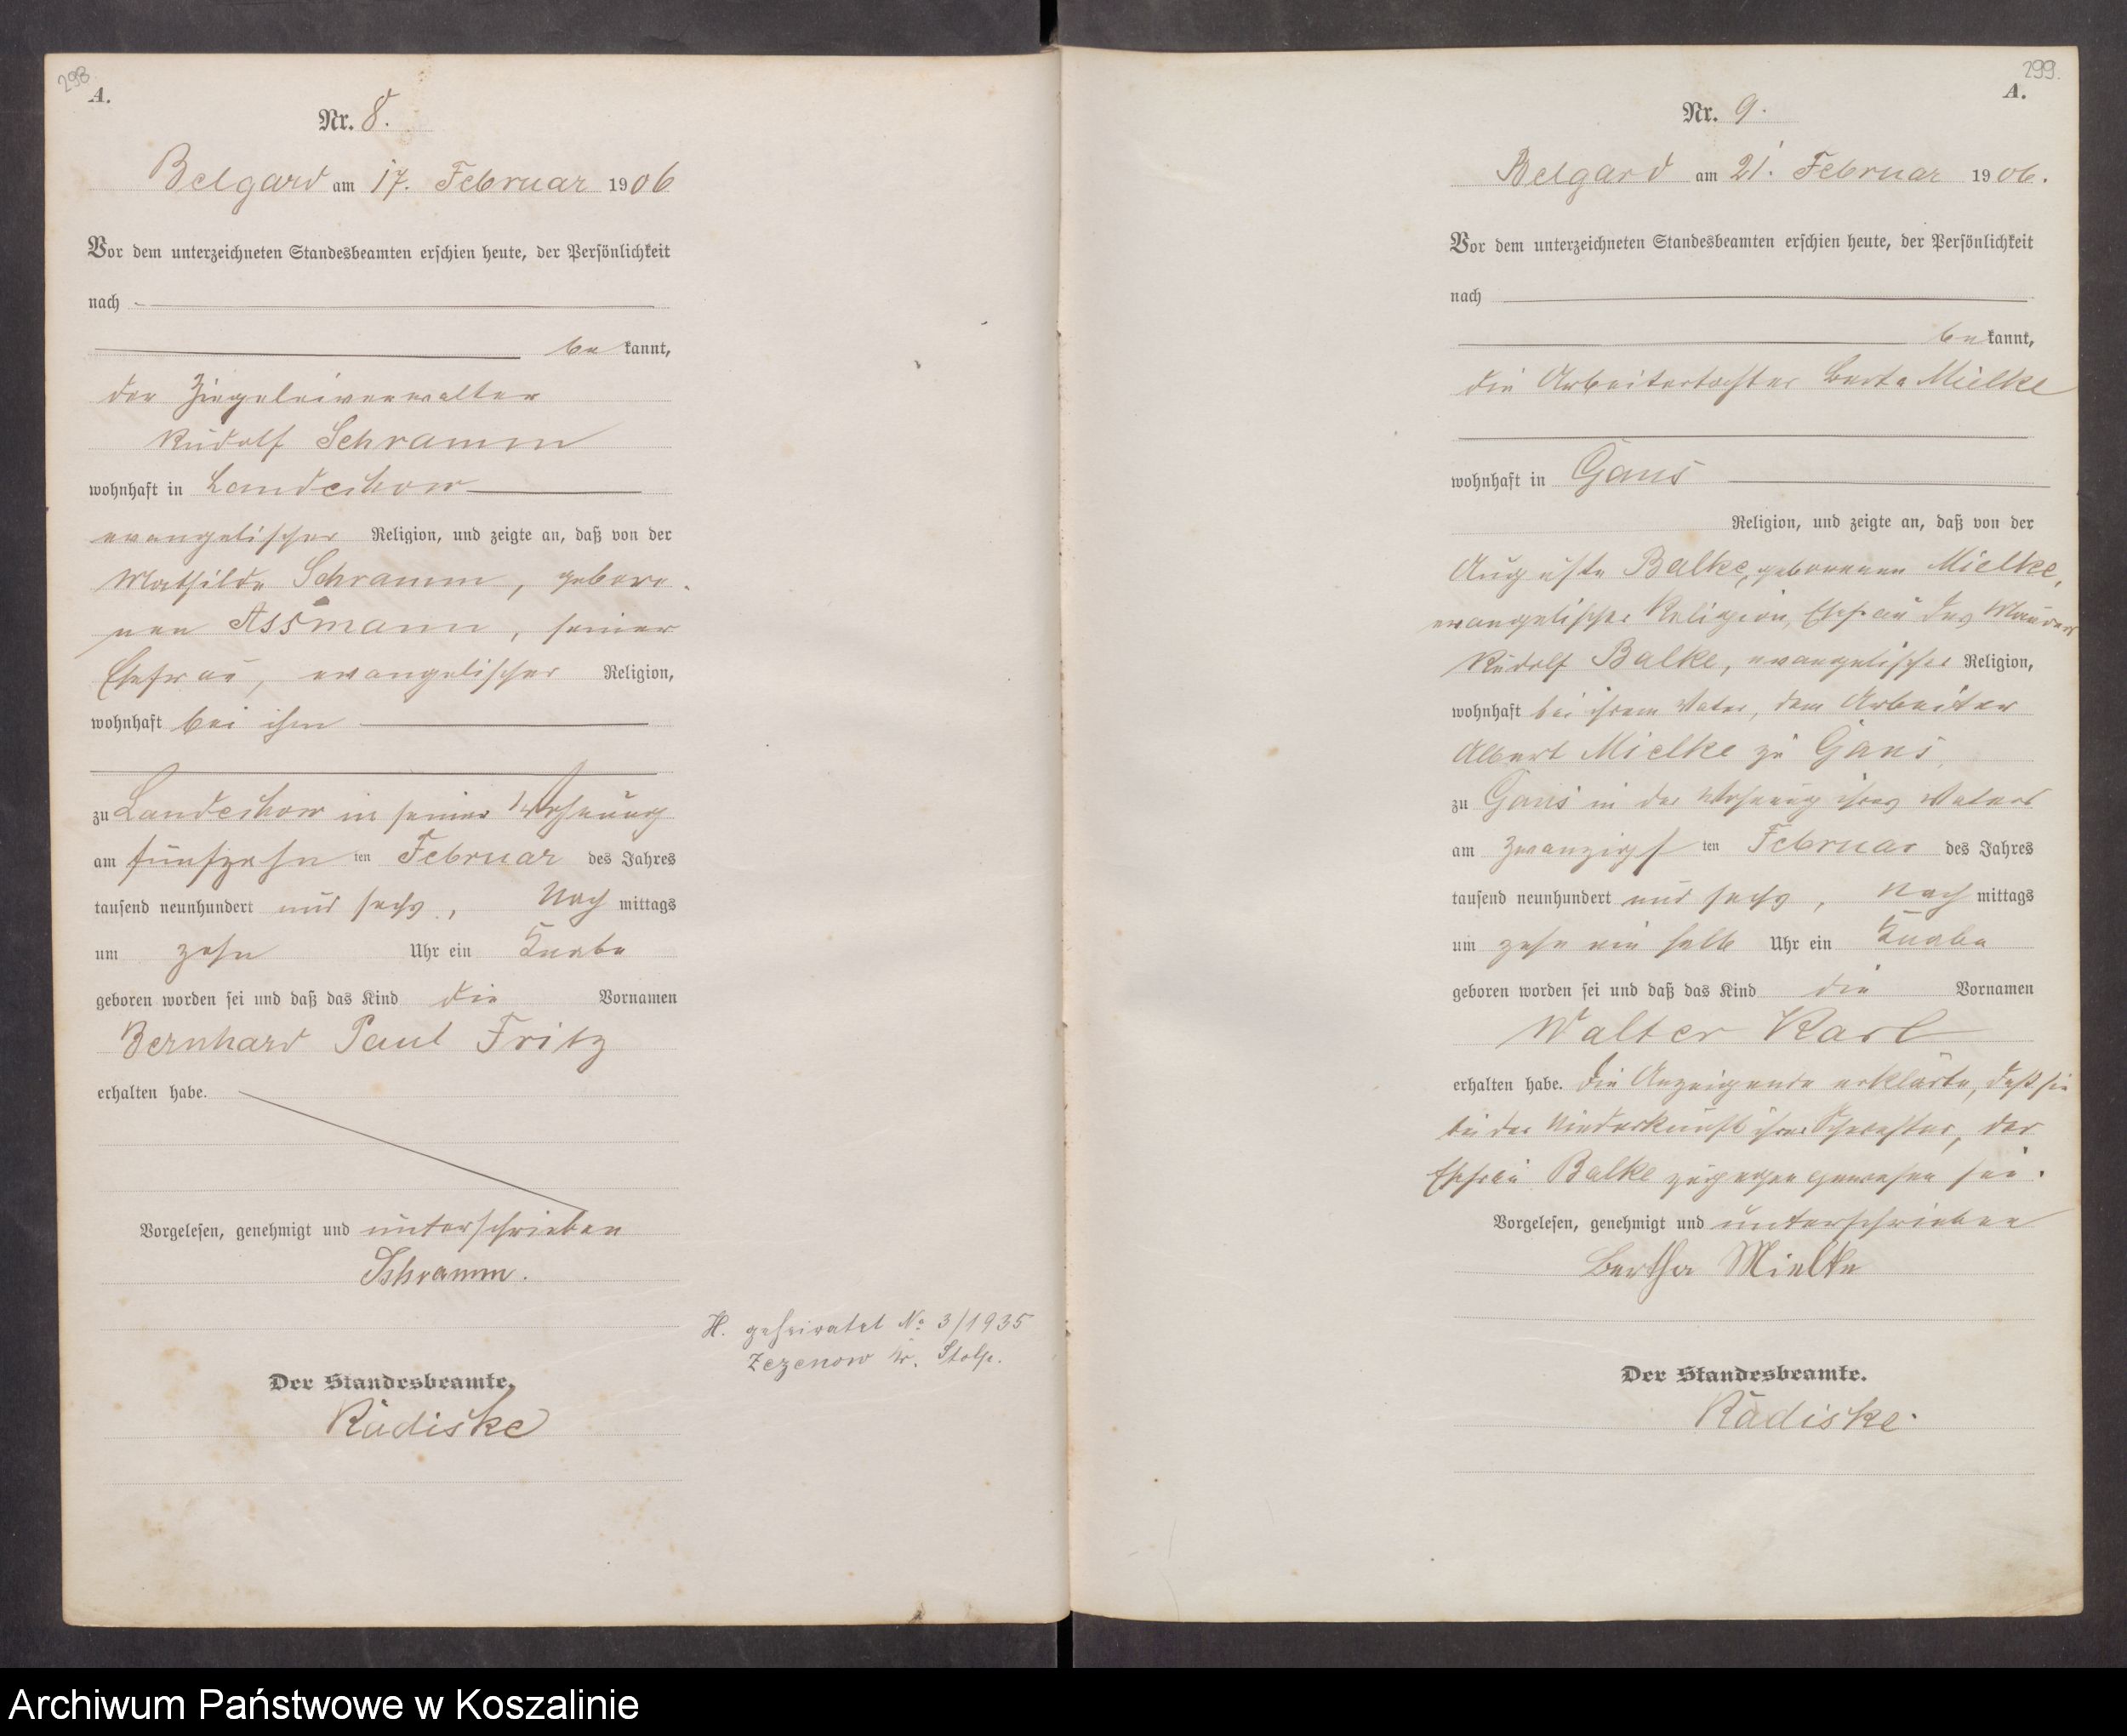 298
A.
Nr. 8.
Belgard am 17. Februar 1906
Vor dem unterzeichneten Standesbeamten erschien heute, der Persönlichkeit
nach
be kannt,
der Ziegeleiverwalter
Rudolf Schramm
wohnhaft in Landechow
evangelischer Religion, und zeigte an, daß von der
Mathilde Schramm, gebore-
nen Assmann, seiner
Ehefrau, evangelischer Religion,
wohnhaft bei ihm
zu Landechow in seiner Wohnung
am fünfzehn ten Februar des Jahres
tausend neunhundert und sechs, Nach mittags
um zehn Uhr ein Knabe
geboren worden sei und daß das Kind die Vornamen
Bernhard Paul Fritz
erhalten habe.
Vorgelesen, genehmigt und unterschrieben
Schramm.
H. geheiratet No 3/1935
Zezenow Kr. Stolp.
Der Standesbeamte.
Radiske
299.
A.
Nr. 9.
Belgard am 21. Februar 1906.
Vor dem unterzeichneten Standesbeamten erschien heute, der Persönlichkeit
nach
be kannt,
die Arbeitertochter Berta Mielke
wohnhaft in Gans
Religion, und zeigte an, daß von der
Auguste Balke, geborenen Mielke,
evangelischer Religion, Ehefrau des Maurers
Rudolf Balke, evangelischer Religion,
wohnhaft bei ihrem Vater, dem Arbeiter
Albert Mielke zu Gans,
zu Gans in der Wohnung ihres Vaters
am zwanzigs ten Februar des Jahres
tausend neunhundert und sechs, Nach mittags
um zehn ein halb Uhr ein Knabe
geboren worden sei und daß das Kind die Vornamen
Walter Karl
erhalten habe. Die Anzeigende erklärte, daß sie
bei der Niederkunft ihrer Schwester, der
Ehefrau Balke zugegen gewesen sei.
Vorgelesen, genehmigt und unterschrieben
Bertha Mielke
Der Standesbeamte.
Radiske.
Archiwum Państwowe w Koszalinie